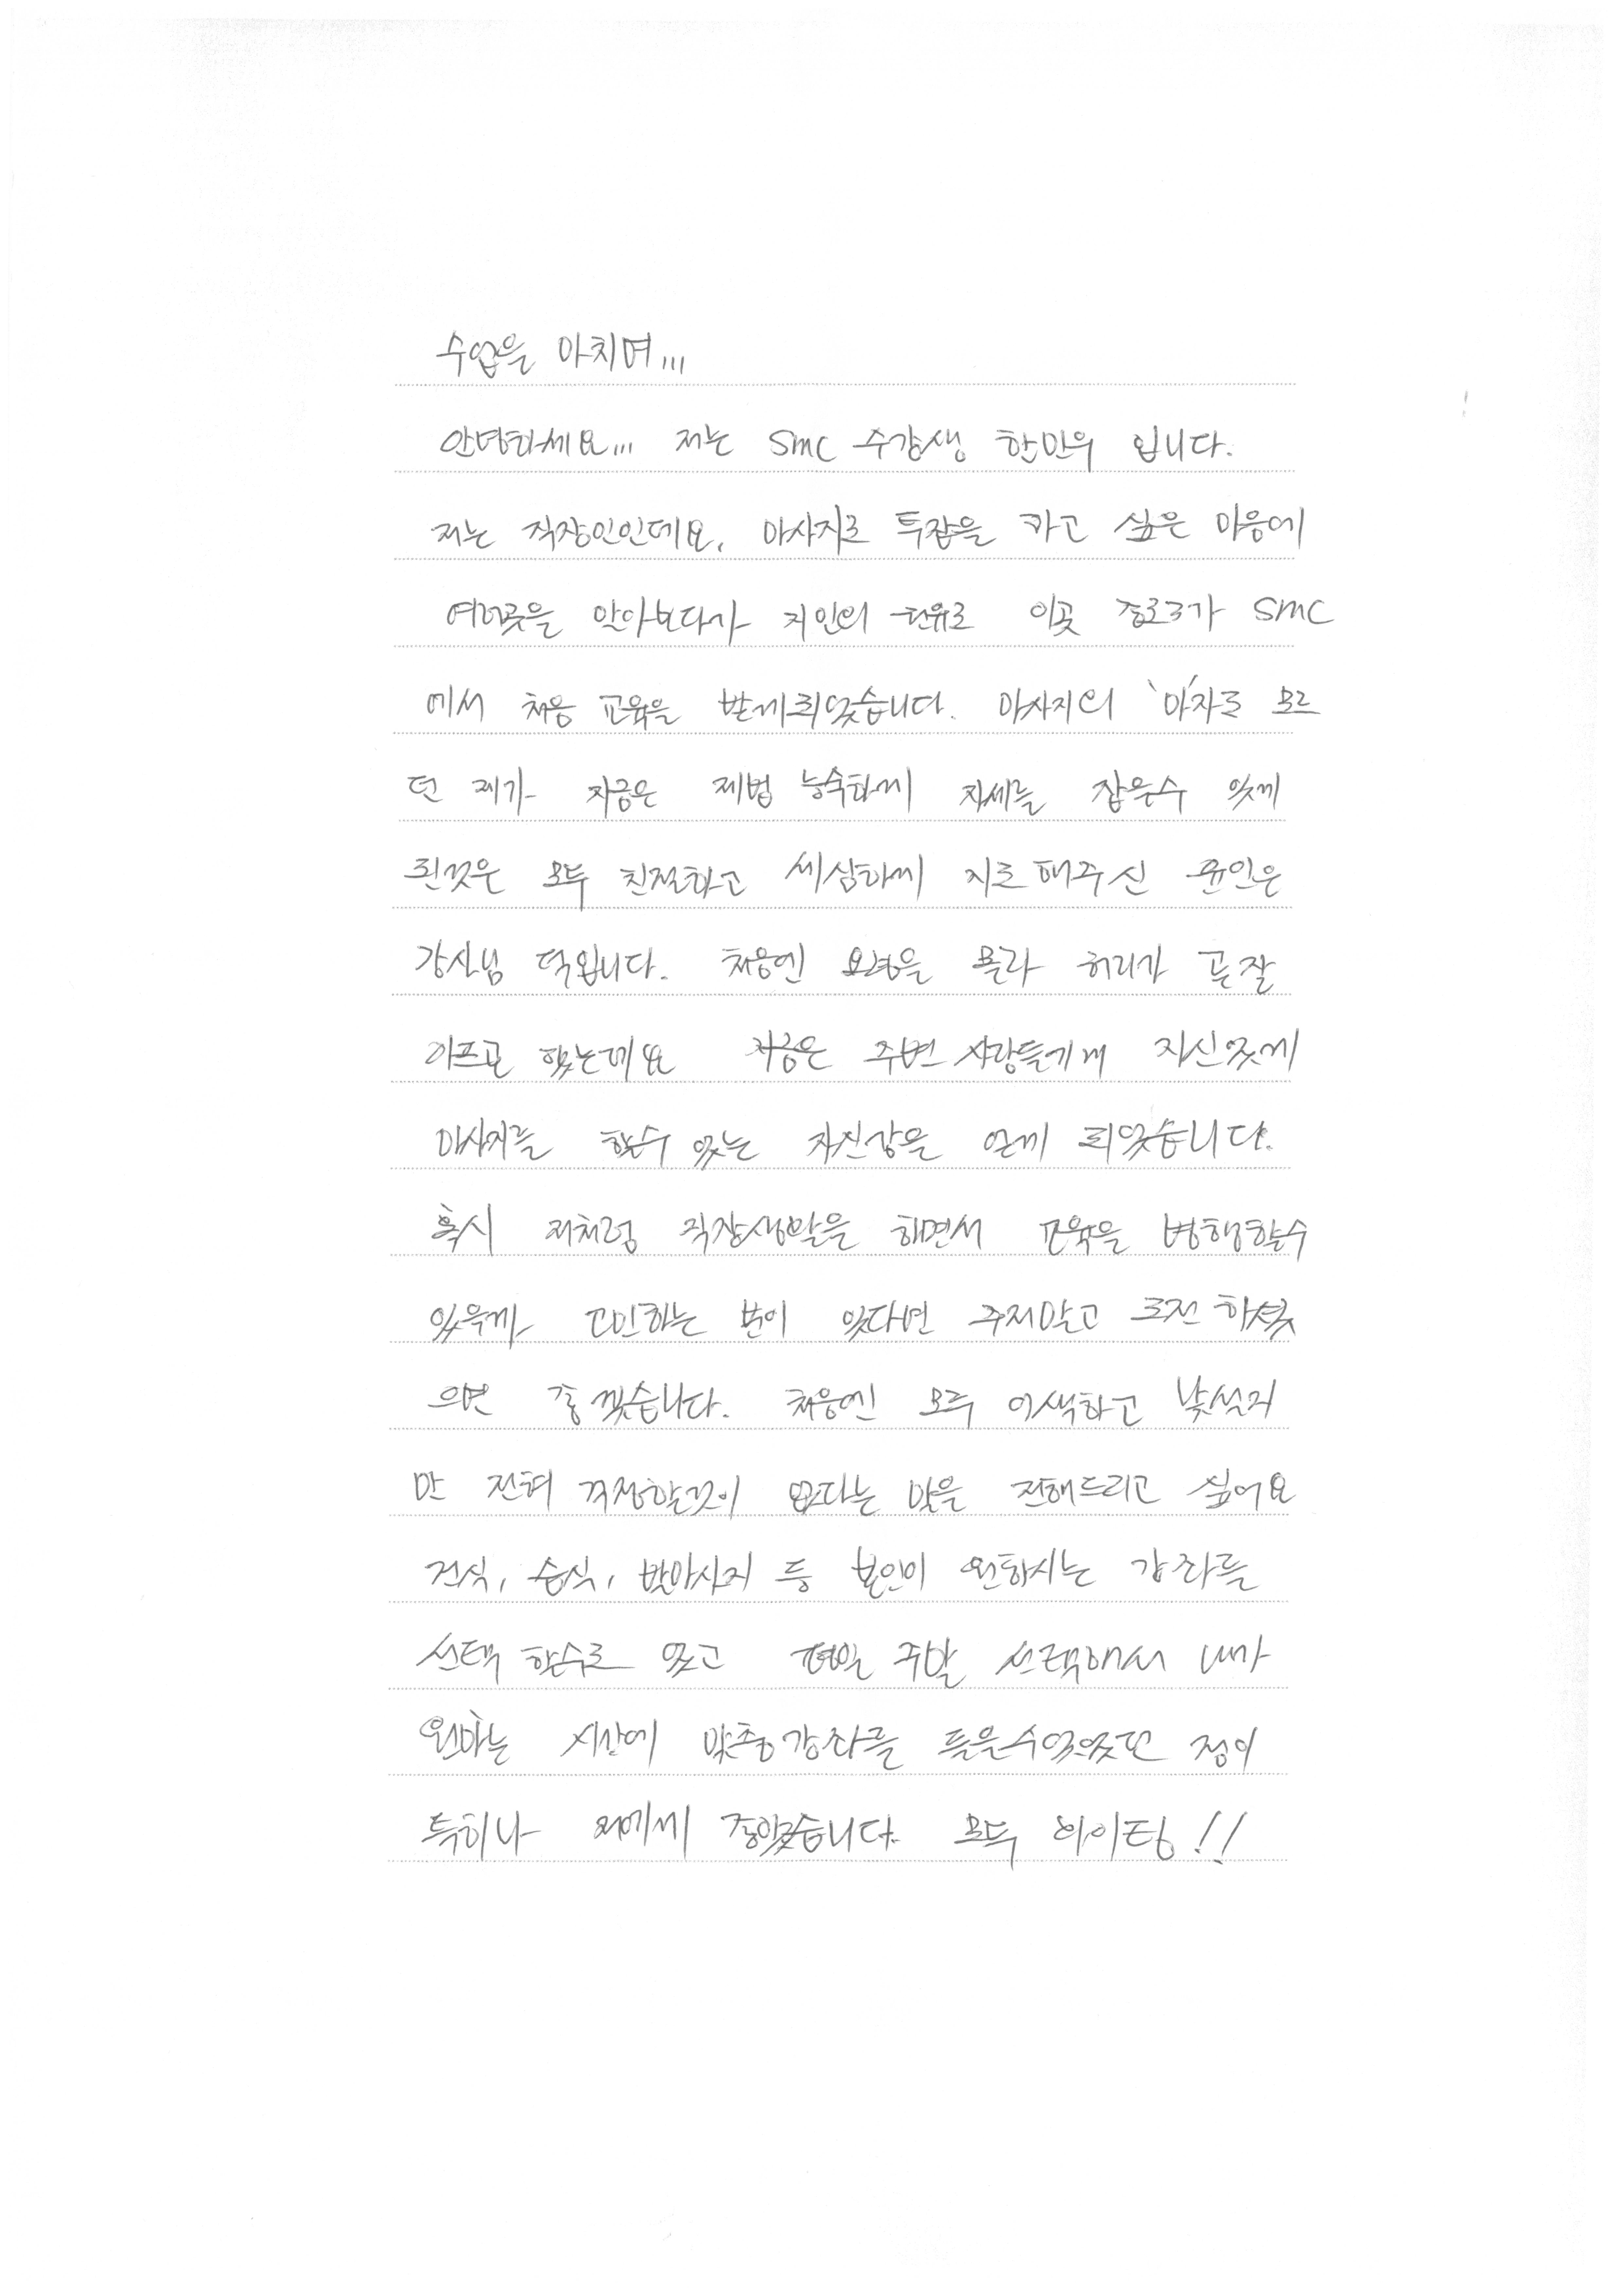 수업을 마치며...
안녕하세요... 저는 SMC 수강생 한민우 입니다.
저는 직장인인데요, 마사지로 투잡을 하고 싶은 마음에
여러곳을 알아보다가 지인의 권유로 이곳 종로3가 SMC
에서 처음 교육을 받게되었습니다. 마사지의 '마'자도 모르
던 제가 지금은 제법 능숙하게 자세를 잡을수 있게
된것은 모두 친절하고 세심하게 지도해주신 윤인은
강사님 덕입니다. 처음엔 요령을 몰라 허리가 곧잘
아프곤 했는데요 지금은 주변 사람들에게 자신있게
마사지를 할수 있는 자신감을 얻게 되었습니다.
혹시 저처럼 직장생활을 하면서 교육을 병행할수
있을까 고민하는 분이 있다면 주저말고 도전 하셨
으면 좋겠습니다. 처음엔 모두 어색하고 낯설지
만 전혀 걱정할것이 없다는 말을 전해드리고 싶어요
건식, 습식, 발마사지 등 본인이 원하시는 강좌를
선택 할수도 있고 평일 주말 선택해서 내가
원하는 시간에 맞춤강좌를 들을수있었던 점이
특히나 저에게 좋았습니다. 모두 화이팅!!